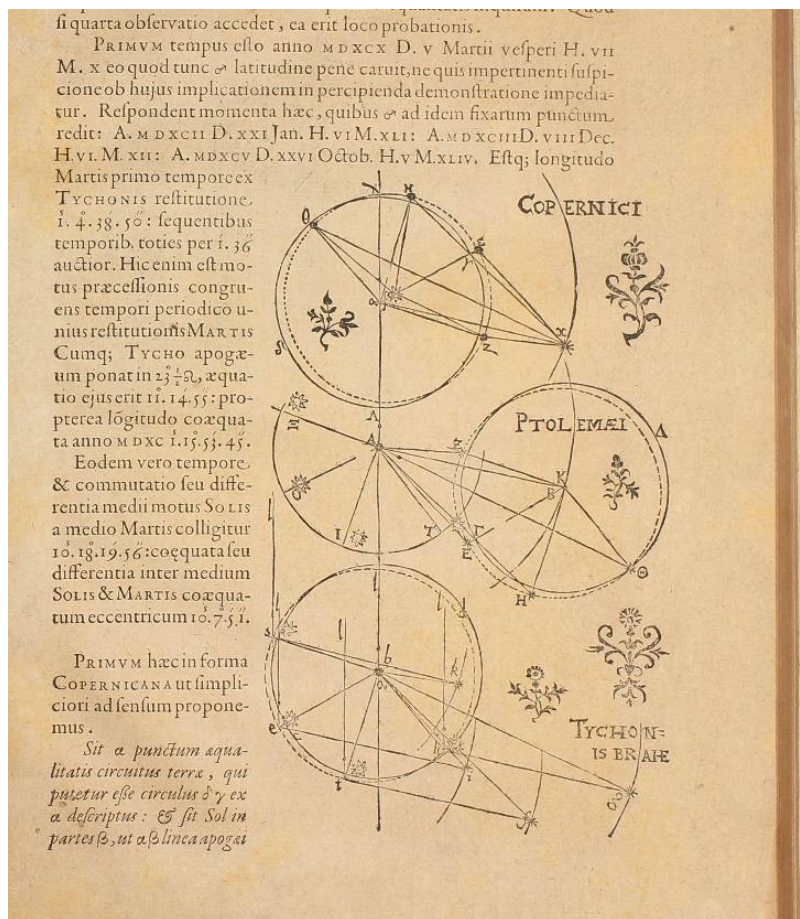 si quarta observatio accedet, ea erit loco probationis.
PRIMVM tempus esto anno MDXCX D. V Martii vesperi H. VII
M. X eo quod tunc ♂ latitudine pene caruit, ne quis impertinenti suspi-
cione ob hujus implicationem in percipienda demonstratione impedia-
tur. Respondent momenta hæc, quibus ♂ ad idem fixarum punctum
redit: A. MDXCII D. XXI Jan. H. VI M. XLI: A. MDXCIII D. VIII Dec.
H. VI. M. XII: A. MDXCV D. XXVI Octob. H. V M. XLIV. Estq; longitudo
Martis primo tempore ex
TYCHONIS restitutione
1. 4. 38. 50: sequentibus
temporib. toties per 1. 36
auctior. Hic enim est mo-
tus præcessionis congru-
ens tempori periodico u-
nius restitutionis MARTIS
Cumq; TYCHO apogæ-
um ponat in 23½♌, æqua-
tio ejus erit 11. 14. 55: pro-
pterea lõgitudo coæqua-
ta anno MDXC 1. 15. 53. 45.
Eodem vero tempore
& commutatio seu diffe-
rentia medii motus SOLIS
a medio Martis colligitur
10. 18. 19. 56: coęquata seu
differentia inter medium
SOLIS & MARTIS coæqua-
tum eccentricum 10. 7. 5. 1.
PRIMVM hæc in forma
COPERNICANA ut simpli-
ciori ad sensum propone-
mus.
Sit α punctum æqua-
litatis circuitus terræ, qui
putetur esse circulus δ γ ex
α descriptus: & sit Sol in
partes β, ut αβ linea apogæi
COPERNICI
PTOLEMÆI
TYCHON=
IS BRAHE